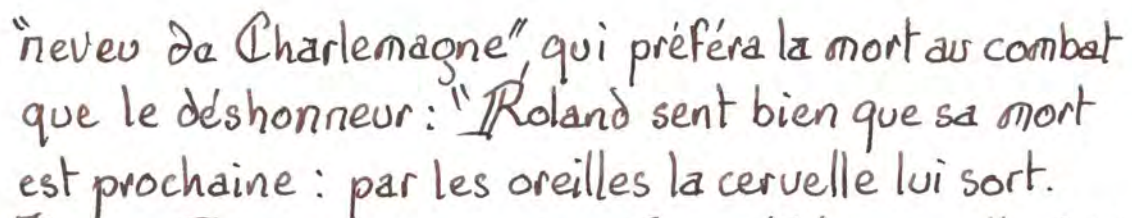 "neveu de Charlemagne", qui préféra la mort au combat
que le déshonneur : "Roland sent bien que sa mort
est prochaine : par les oreilles la cervelle lui sort.